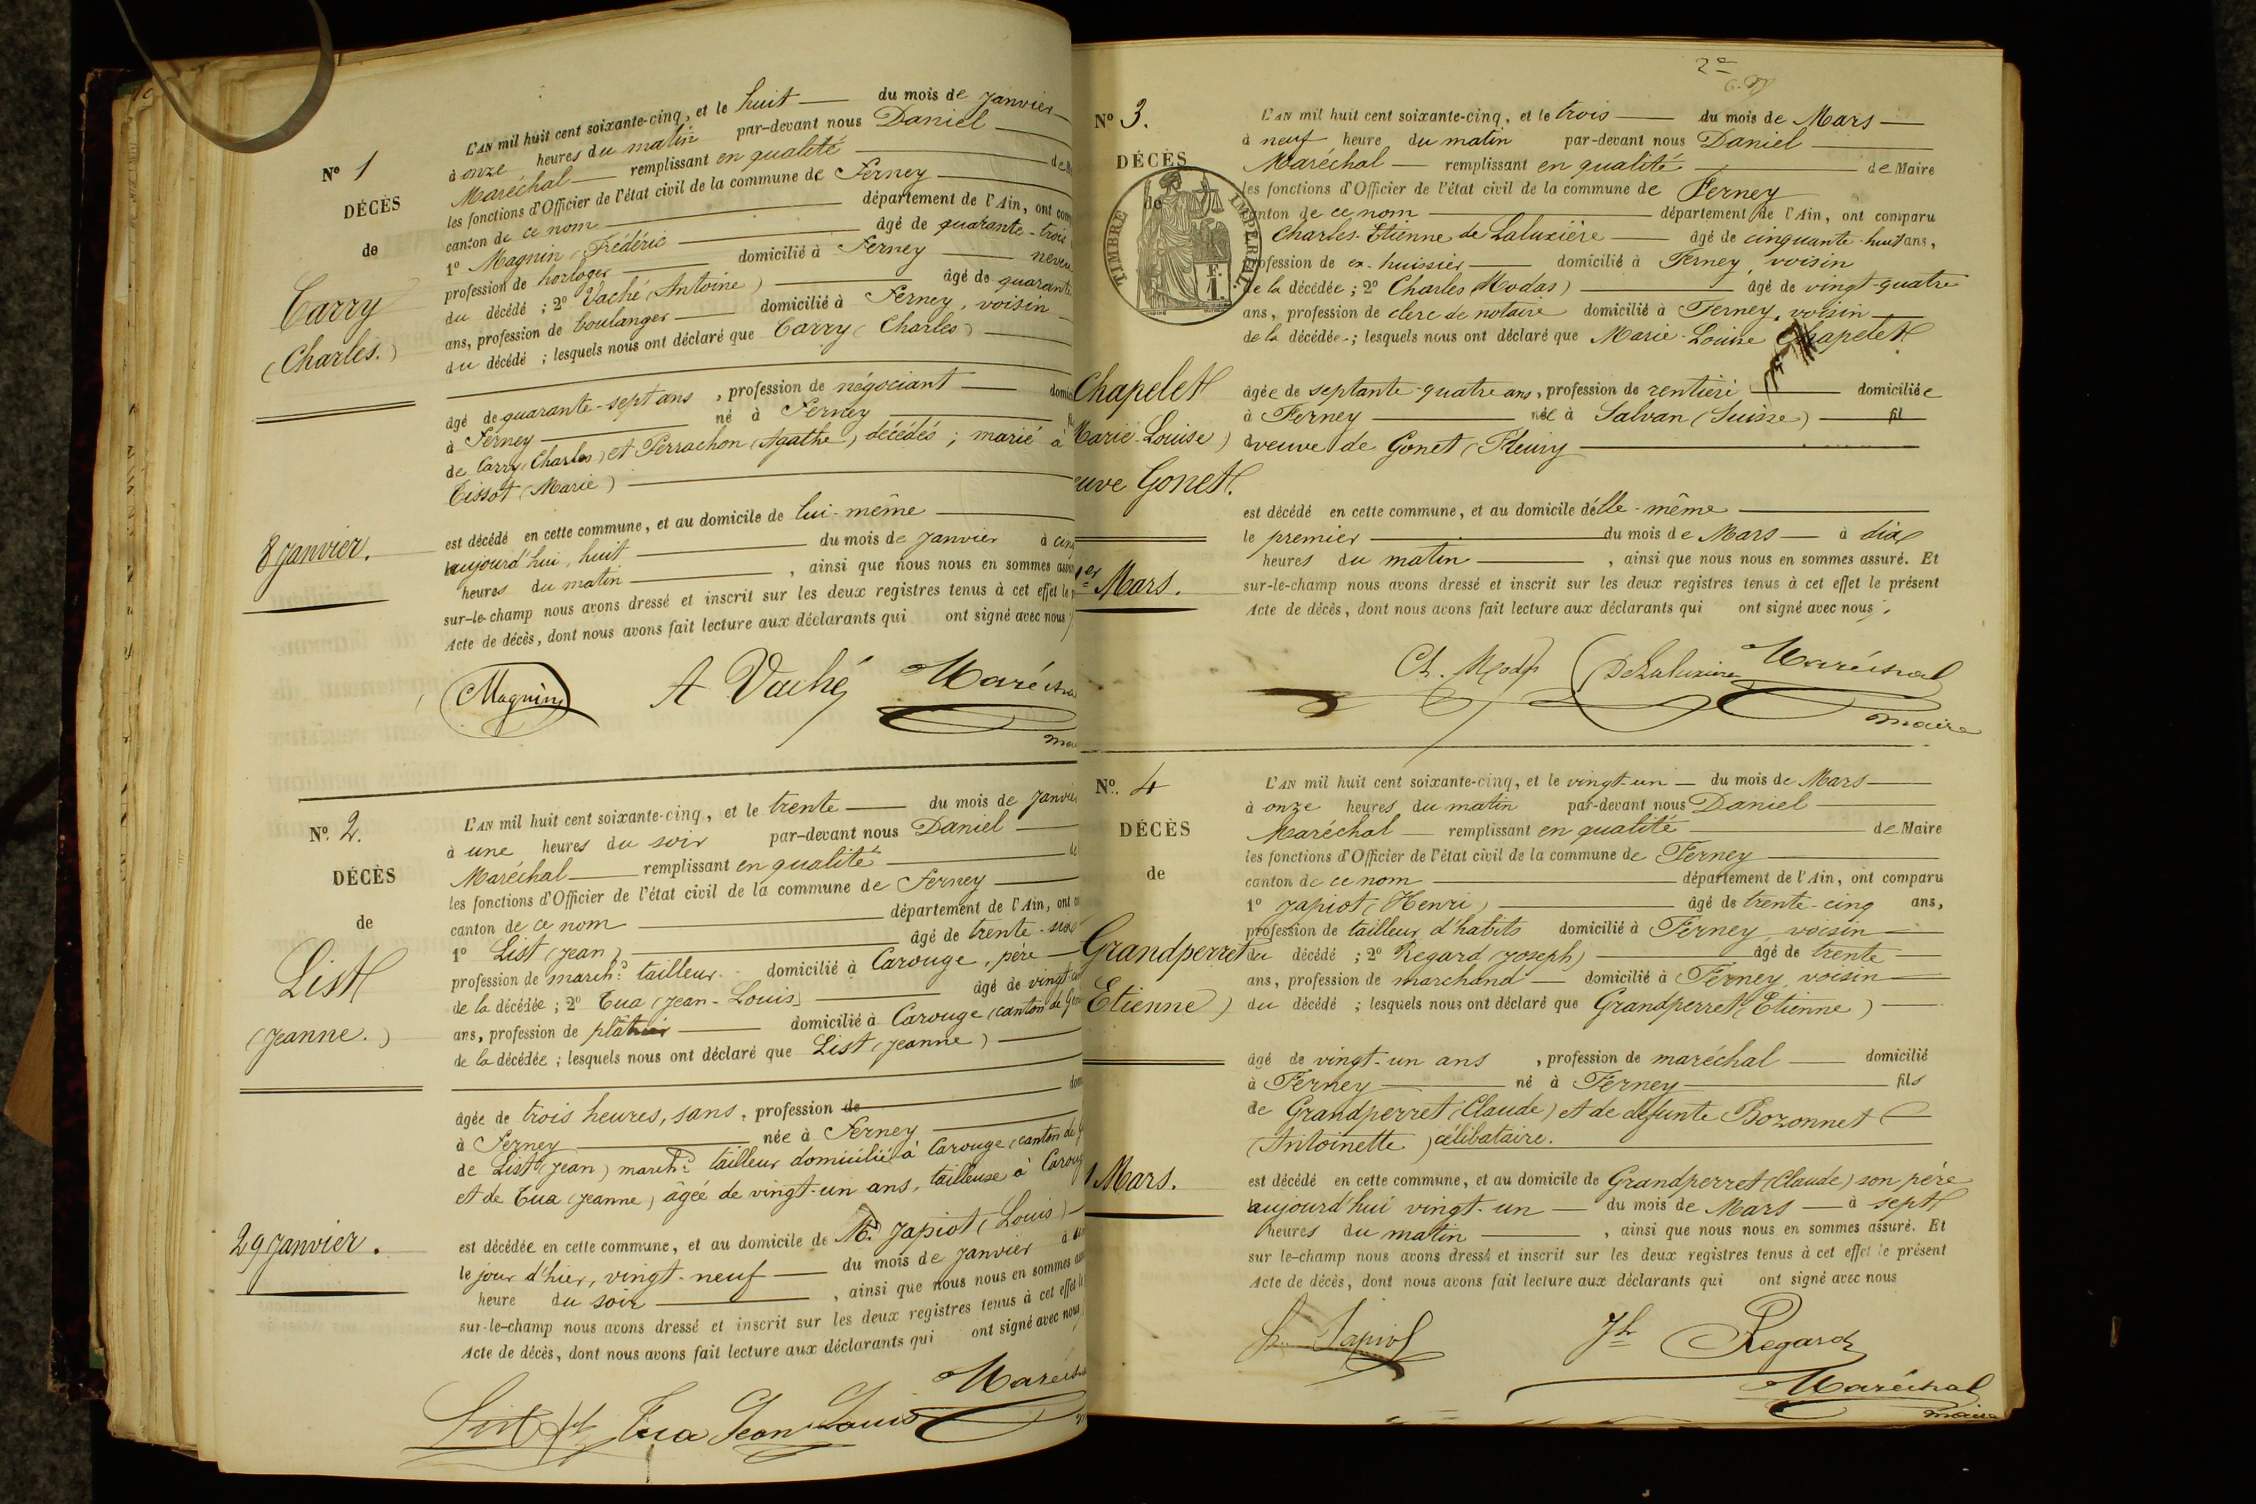 Nº 1
DÉCÈS
de
Carry
(Charles.)
8 Janvier.
L'AN mil huit cent soixante-cinq, et le huit du mois de Janvier
à onze heures du matin par-devant nous Daniel
Maréchal remplissant en qualité de
les fonctions d'Officier de l'état civil de la commune de Ferney
canton de ce nom département de l'Ain, ont
1º Magnin (Frédéric âgé de quarante-trois
profession de horloger domicilié à Ferney neveu
du décédé ; 2º Vaché (Antoine) âgé de quarante
ans, profession de boulanger domicilié à Ferney, voisin
du décédé ; lesquels nous ont déclaré que Carry (Charles)
âgé de quarante-sept ans, profession de négociant
à Ferney né à Ferney
de Carry (Charles) et Perrachon (Agathe) décédés ; marié à
Tissot (Marie)
est décédé en cette commune, et au domicile de lui-même
aujourd'hui, huit du mois de Janvier à
heures du matin, ainsi que nous nous en sommes
sur-le-champ nous avons dressé et inscrit sur les deux registres tenus à cet effet le
Acte de décès, dont nous avons fait lecture aux déclarants qui ont signé avec nous
Magnin A Vaché Maréchal
Nº 2.
DÉCÈS
de
List
(Jeanne.)
29 Janvier.
L'AN mil huit cent soixante-cinq, et le trente du mois de Janvier
à une heures du soir par-devant nous Daniel
Maréchal remplissant en qualité de
les fonctions d'Officier de l'état civil de la commune de Ferney
canton de ce nom département de l'Ain, ont
1º List (Jean) âgé de trente-six
profession de march.d tailleur domicilié à Carouge, père
de la décédée ; 2º Tua (Jean-Louis) âgé de vingt
ans, profession de plâtrier domicilié à Carouge (canton de
de la décédée ; lesquels nous ont déclaré que List (Jeanne)
âgée de trois heures, sans, profession de
à Ferney née à Ferney
de List (Jean) march.d tailleur domicilié à Carouge (canton de
et de Tua (Jeanne) âgée de vingt-un ans, tailleuse à Carouge
est décédée en cette commune, et au domicile de Mr. Japiot (Louis)
le jour d'hier, vingt-neuf du mois de Janvier à
heure du soir, ainsi que nous nous en sommes
sur-le-champ nous avons dressé et inscrit sur les deux registres tenus à cet effet le
Acte de décès, dont nous avons fait lecture aux déclarants qui ont signé avec nous
List Tua Jean Louis Maréchal
2e
Nº 3.
DÉCÈS
de
TIMBRE IMPÉRIAL.
F.
1.
Chapelet
Marie-Louise)
Gonet.
1er Mars.
L'AN mil huit cent soixante-cinq, et le trois du mois de Mars
à neuf heure du matin par-devant nous Daniel
Maréchal remplissant en qualité de Maire
les fonctions d'Officier de l'état civil de la commune de Ferney
canton de ce nom département de l'Ain, ont comparu
Charles-Etienne de Laluxière âgé de cinquante-huit ans,
profession de ex-huissier domicilié à Ferney, voisin
de la décédée ; 2º Charles (Modas) âgé de vingt-quatre
ans, profession de clerc de notaire domicilié à Ferney, voisin
de la décédée ; lesquels nous ont déclaré que Marie-Louise Chapelet
âgée de septante-quatre ans, profession de rentière domiciliée
à Ferney née à Salvan (Suisse) fil
veuve de Gonet (Fleury
est décédé en cette commune, et au domicile d'elle-même
le premier du mois de Mars à dix
heures du matin, ainsi que nous nous en sommes assuré. Et
sur-le-champ nous avons dressé et inscrit sur les deux registres tenus à cet effet le présent
Acte de décès, dont nous avons fait lecture aux déclarants qui ont signé avec nous ;
DeLaluxière Maréchal
maire
Nº. 4
DÉCÈS
de
Grandperret
Etienne)
Mars.
L'AN mil huit cent soixante-cinq, et le vingt-un du mois de Mars
à onze heures du matin par-devant nous Daniel
Maréchal remplissant en qualité de Maire
les fonctions d'Officier de l'état civil de la commune de Ferney
canton de ce nom département de l'Ain, ont comparu
1º Japiot (Henri) âgé de trente-cinq ans,
profession de tailleur d'habits domicilié à Ferney, voisin
du décédé ; 2º Regard (Joseph) âgé de trente
ans, profession de marchand domicilié à Ferney, voisin
du décédé ; lesquels nous ont déclaré que Grandperret (Etienne)
âgé de vingt-un ans, profession de maréchal domicilié
à Ferney né à Ferney fils
de Grandperret (Claude) et de défunte Bozonnet
(Antoinette) célibataire.
est décédé en cette commune, et au domicile de Grandperret (Claude) son père
aujourd'hui vingt-un du mois de Mars à sept
heures du matin, ainsi que nous nous en sommes assuré. Et
sur le-champ nous avons dressé et inscrit sur les deux registres tenus à cet effet le présent
Acte de décès, dont nous avons fait lecture aux déclarants qui ont signé avec nous
Japiot Jh Regard
Maréchal
maire